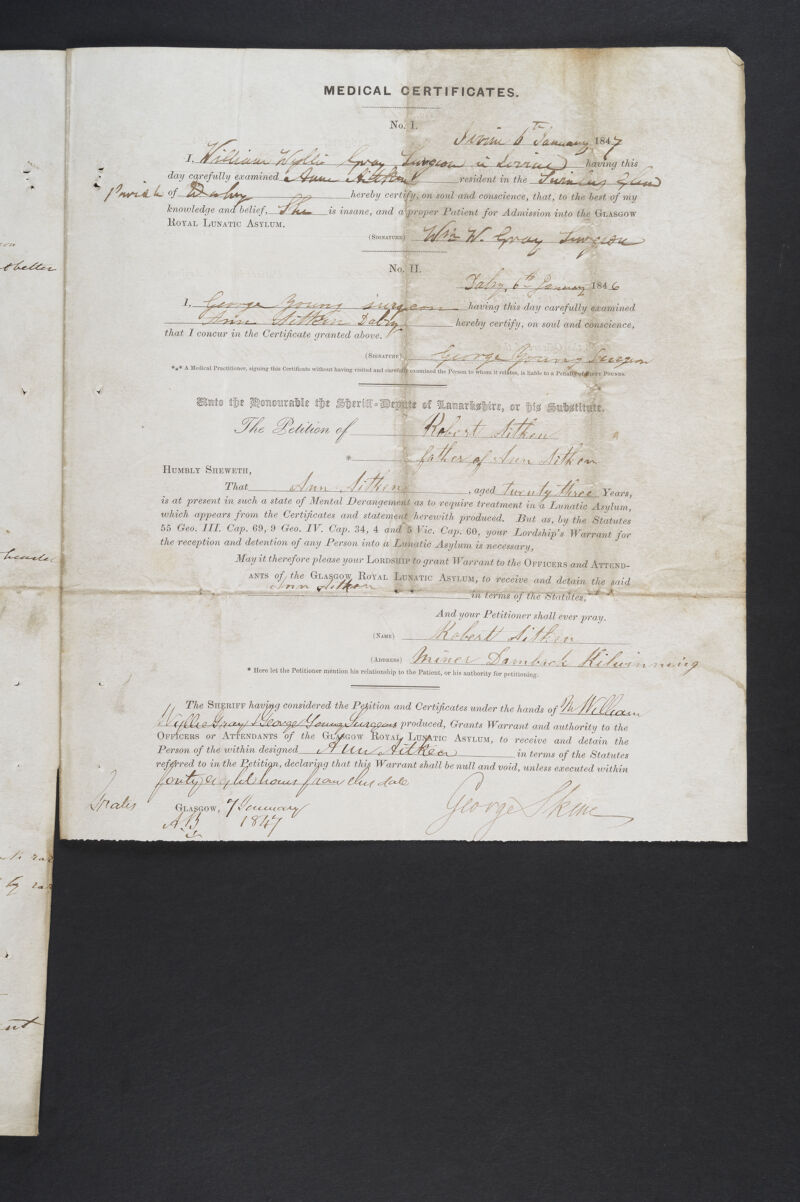 MEDICAL CERTIFICATES.
No. I.
Irvine 6th January 1847
I, William Wyllie Gray Surgeon in Irvine having this
day carefully examined Anne Aitken resident in the
Parish of Dalry hereby certify, on soul and conscience, that, to the best of my
knowledge and belief, She is insane, and a proper Patient for Admission into the GLASGOW
ROYAL LUNATIC ASYLUM.
(SIGNATURE) Wm W. Gray Surgeon
No. II.
Dalry, 6th January 1846
I, George Young surgeon having this day carefully examined
Ann Aitken Dalry hereby certify, on soul and conscience,
that I concur in the Certificate granted above.
(SIGNATURE) George Young Surgeon
*** A Medical Practitioner, signing this Certificate without having visited and carefully examined the Person to whom it relates, is liable to a Penalty of FIFTY POUNDS.
Unto the Honourable the Sheriff-Depute of Lanarkshire, or his Substitute.
The Petition of Robert Aitken
* father of Ann Aitken
HUMBLY SHEWETH,
That Ann Aitken, aged twenty three Years,
is at present in such a state of Mental Derangement as to require treatment in a Lunatic Asylum,
which appears from the Certificates and statement herewith produced. But as, by the Statutes
55 Geo. III. Cap. 69, 9 Geo. IV. Cap. 34, 4 and 5 Vic. Cap. 60, your Lordship's Warrant for
the reception and detention of any Person into a Lunatic Asylum is necessary,
May it therefore please your LORDSHIP to grant Warrant to the OFFICERS and ATTEND-
ANTS of the GLASGOW ROYAL LUNATIC ASYLUM, to receive and detain the said
Ann Aitken in terms of the Statutes,
And your Petitioner shall ever pray.
(NAME) Robert Aitken
(ADDRESS) Miner Kilwinning
* Here let the Petitioner mention his relationship to the Patient, or his authority for petitioning.
The SHERIFF having considered the Petition and Certificates under the hands of William
Wyllie Gray & George Young Surgeons produced, Grants Warrant and authority to the
OFFICERS or ATTENDANTS of the GLASGOW ROYAL LUNATIC ASYLUM, to receive and detain the
Person of the within designed Ann Aitken in terms of the Statutes
referred to in the Petition, declaring that this Warrant shall be null and void, unless executed within
forty eight hours from this date
GLASGOW, 7 January
1847
George Skene